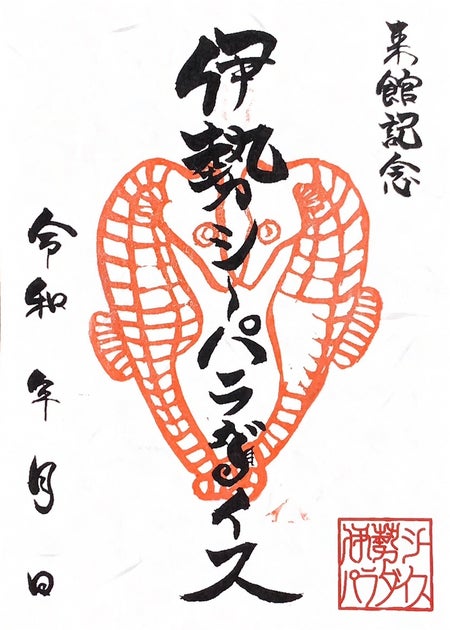 来館記念
伊勢シーパラダイス
令和 年 月 日
伊勢シー
パラダイス